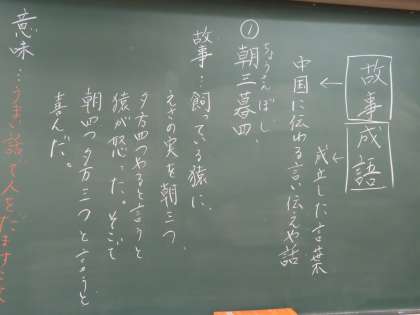 故事成語
成立した言葉
中国に伝わる言い伝えや話
① 朝三暮四
ちょうさんぼし
故事…飼っている猿に、
えさの実を朝三つ、
夕方四つやると言うと
猿が怒った。そこで
朝四つ夕方三つと言うと
喜んだ。
意味…うまい話で人をだますこと